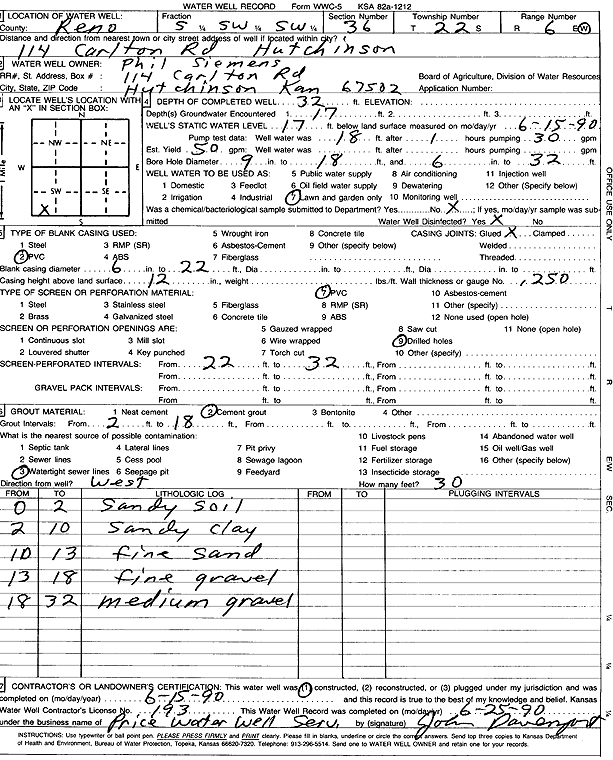 WATER WELL RECORD Form WWC-5 KSA 82a-1212
LOCATION OF WATER WELL: Fraction Section Number Township Number Range Number
County: Reno S ¼ SW ¼ SW ¼ 36 T 22 S R 6 E/W
Distance and direction from nearest town or city street address of well if located within city?
114 Carlton Rd Hutchinson
2 WATER WELL OWNER: Phil Siemens
RR#, St. Address, Box # : 114 Carlton Rd Board of Agriculture, Division of Water Resources
City, State, ZIP Code : Hutchinson Kan 67502 Application Number:
LOCATE WELL'S LOCATION WITH AN "X" IN SECTION BOX:
N
NW NE
W E
SW SE
X
S
1 Mile
4 DEPTH OF COMPLETED WELL 32 ft. ELEVATION:
Depth(s) Groundwater Encountered 1. 17 ft. 2. ft. 3. ft.
WELL'S STATIC WATER LEVEL 17 ft. below land surface measured on mo/day/yr 6-15-90
Pump test data: Well water was 18 ft. after 1 hours pumping 30 gpm
Est. Yield 50 gpm: Well water was ft. after hours pumping gpm
Bore Hole Diameter 9 in. to 18 ft., and 6 in. to 32 ft.
WELL WATER TO BE USED AS: 5 Public water supply 8 Air conditioning 11 Injection well
1 Domestic 3 Feedlot 6 Oil field water supply 9 Dewatering 12 Other (Specify below)
2 Irrigation 4 Industrial 7 Lawn and garden only 10 Monitoring well
Was a chemical/bacteriological sample submitted to Department? Yes No X ; If yes, mo/day/yr sample was submitted Water Well Disinfected? Yes X No
5 TYPE OF BLANK CASING USED: 5 Wrought iron 8 Concrete tile CASING JOINTS: Glued X Clamped
1 Steel 3 RMP (SR) 6 Asbestos-Cement 9 Other (specify below) Welded
2 PVC 4 ABS 7 Fiberglass Threaded
Blank casing diameter 6 in. to 22 ft., Dia in. to ft., Dia in. to ft.
Casing height above land surface 12 in., weight lbs./ft. Wall thickness or gauge No. .250
TYPE OF SCREEN OR PERFORATION MATERIAL: 7 PVC 10 Asbestos-cement
1 Steel 3 Stainless steel 5 Fiberglass 8 RMP (SR) 11 Other (specify)
2 Brass 4 Galvanized steel 6 Concrete tile 9 ABS 12 None used (open hole)
SCREEN OR PERFORATION OPENINGS ARE: 5 Gauzed wrapped 8 Saw cut 11 None (open hole)
1 Continuous slot 3 Mill slot 6 Wire wrapped 9 Drilled holes
2 Louvered shutter 4 Key punched 7 Torch cut 10 Other (specify)
SCREEN-PERFORATED INTERVALS: From 22 ft. to 32 ft., From ft. to ft.
From ft. to ft., From ft. to ft.
GRAVEL PACK INTERVALS: From ft. to ft., From ft. to ft.
From ft. to ft., From ft. to ft.
6 GROUT MATERIAL: 1 Neat cement 2 Cement grout 3 Bentonite 4 Other
Grout Intervals: From 2 ft. to 18 ft., From ft. to ft., From ft. to ft.
What is the nearest source of possible contamination: 10 Livestock pens 14 Abandoned water well
1 Septic tank 4 Lateral lines 7 Pit privy 11 Fuel storage 15 Oil well/Gas well
2 Sewer lines 5 Cess pool 8 Sewage lagoon 12 Fertilizer storage 16 Other (specify below)
3 Watertight sewer lines 6 Seepage pit 9 Feedyard 13 Insecticide storage
Direction from well? West How many feet? 30
FROM TO LITHOLOGIC LOG FROM TO PLUGGING INTERVALS
0 2 Sandy soil
2 10 Sandy clay
10 13 fine sand
13 18 fine gravel
18 32 medium gravel
7 CONTRACTOR'S OR LANDOWNER'S CERTIFICATION: This water well was (1) constructed, (2) reconstructed, or (3) plugged under my jurisdiction and was
completed on (mo/day/year) 6-15-90 and this record is true to the best of my knowledge and belief. Kansas
Water Well Contractor's License No. 193 This Water Well Record was completed on (mo/day/yr) 6-25-90
under the business name of Price Water Well Serv. by (signature) John Davenport
INSTRUCTIONS: Use typewriter or ball point pen. PLEASE PRESS FIRMLY and PRINT clearly. Please fill in blanks, underline or circle the correct answers. Send top three copies to Kansas Department
of Health and Environment, Bureau of Water Protection, Topeka, Kansas 66620-7320. Telephone: 913-296-5514. Send one to WATER WELL OWNER and retain one for your records.
OFFICE USE ONLY
T
R
E/W
SEC.
¼
¼
¼